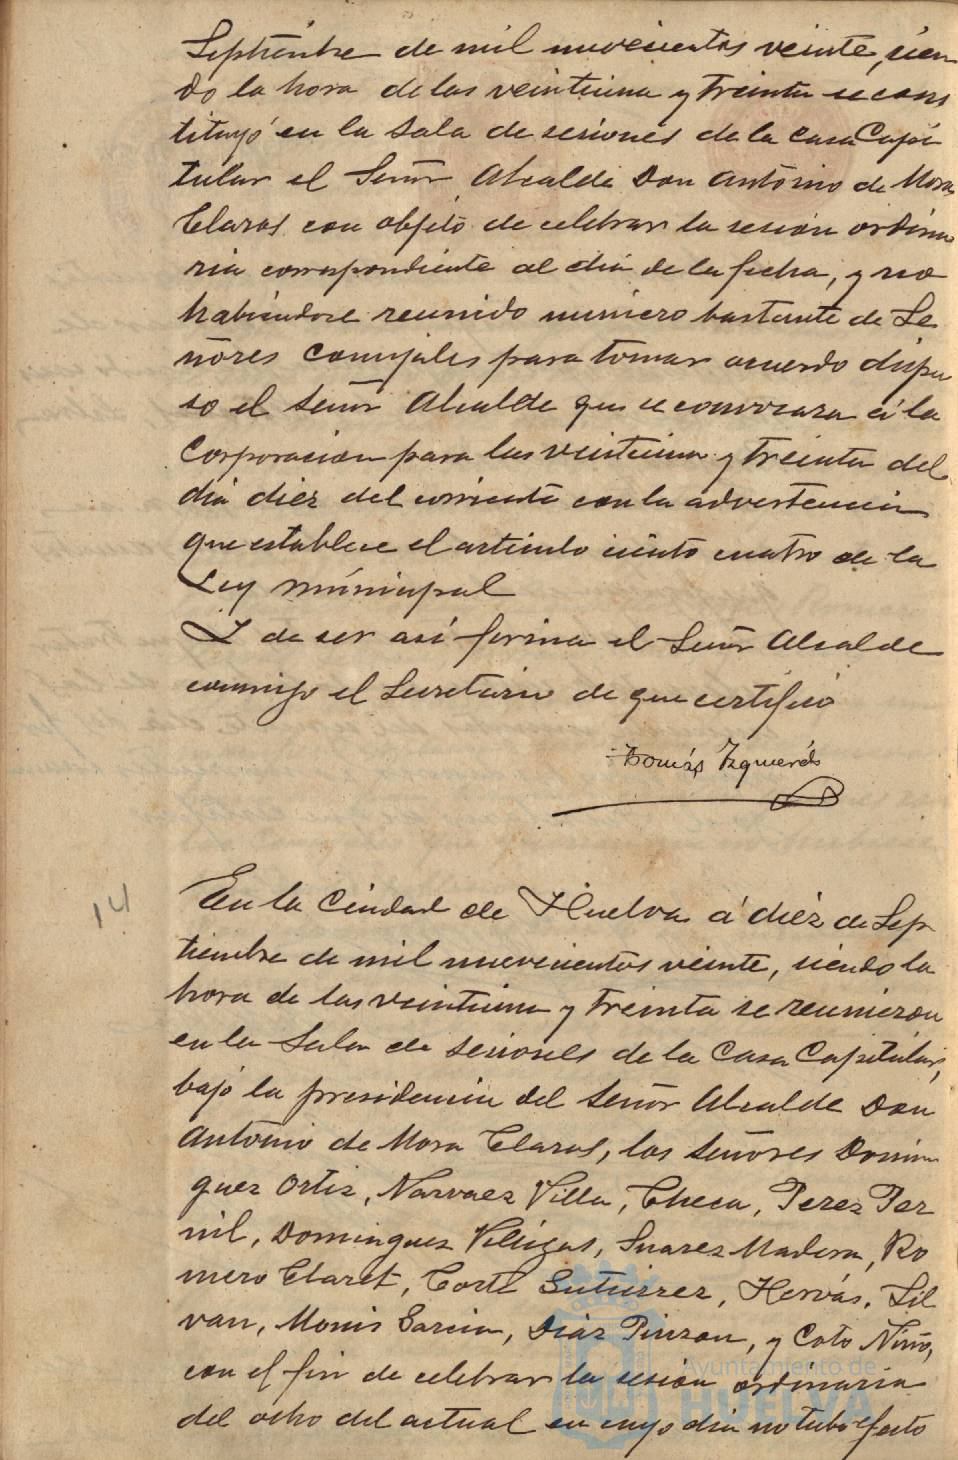 Septiembre de mil nuvecientos veinte, sien
do la hora de las veintiuna y treinta se cons
tituyó en la Sala de sesiones de la Casa Capi
tular el Señor Alcalde Don Antonio de Mora
Claros con objeto de celebrar la sesión ordina
ria correspondiente al dia de la fecha, y no
habiendose reunido número bastante de Se
ñores Concejales para tomar acuerdo dispu
so el Señor Alcalde que se convocara á la
Corporacion para las veintiuna y treinta del
dia diez del corriente con la advertencia
que establece el articulo ciento cuatro de la
Ley Municipal
Y de ser así firma el Señor Alcalde
conmigo el Secretario de que certifico
Tomás Izquierdo
14
En la Ciudad de Huelva á diez de Sep
tiembre de mil nuevecientos veinte, siendo la
hora de las veintiuna y treinta se reunieron
en la Sala de sesiones de la Casa Capitular,
bajo la presidencia del Señor Alcalde Don
Antonio de Mora Claros, los Señores Domin
guez Ortiz, Narvaez Villa, Checa, Perez Per
nil, Dominguez Villegas, Suarez Madera, Ro
mero Claret, Corte Gutierrez, Hervás, Sil
van, Monis Garcia, Diaz Pinzon, y Coto Niño,
con el fin de celebrar la sesion ordinaria
del ocho del actual en cuyo dia no tubo efecto
Ayuntamiento de
HUELVA